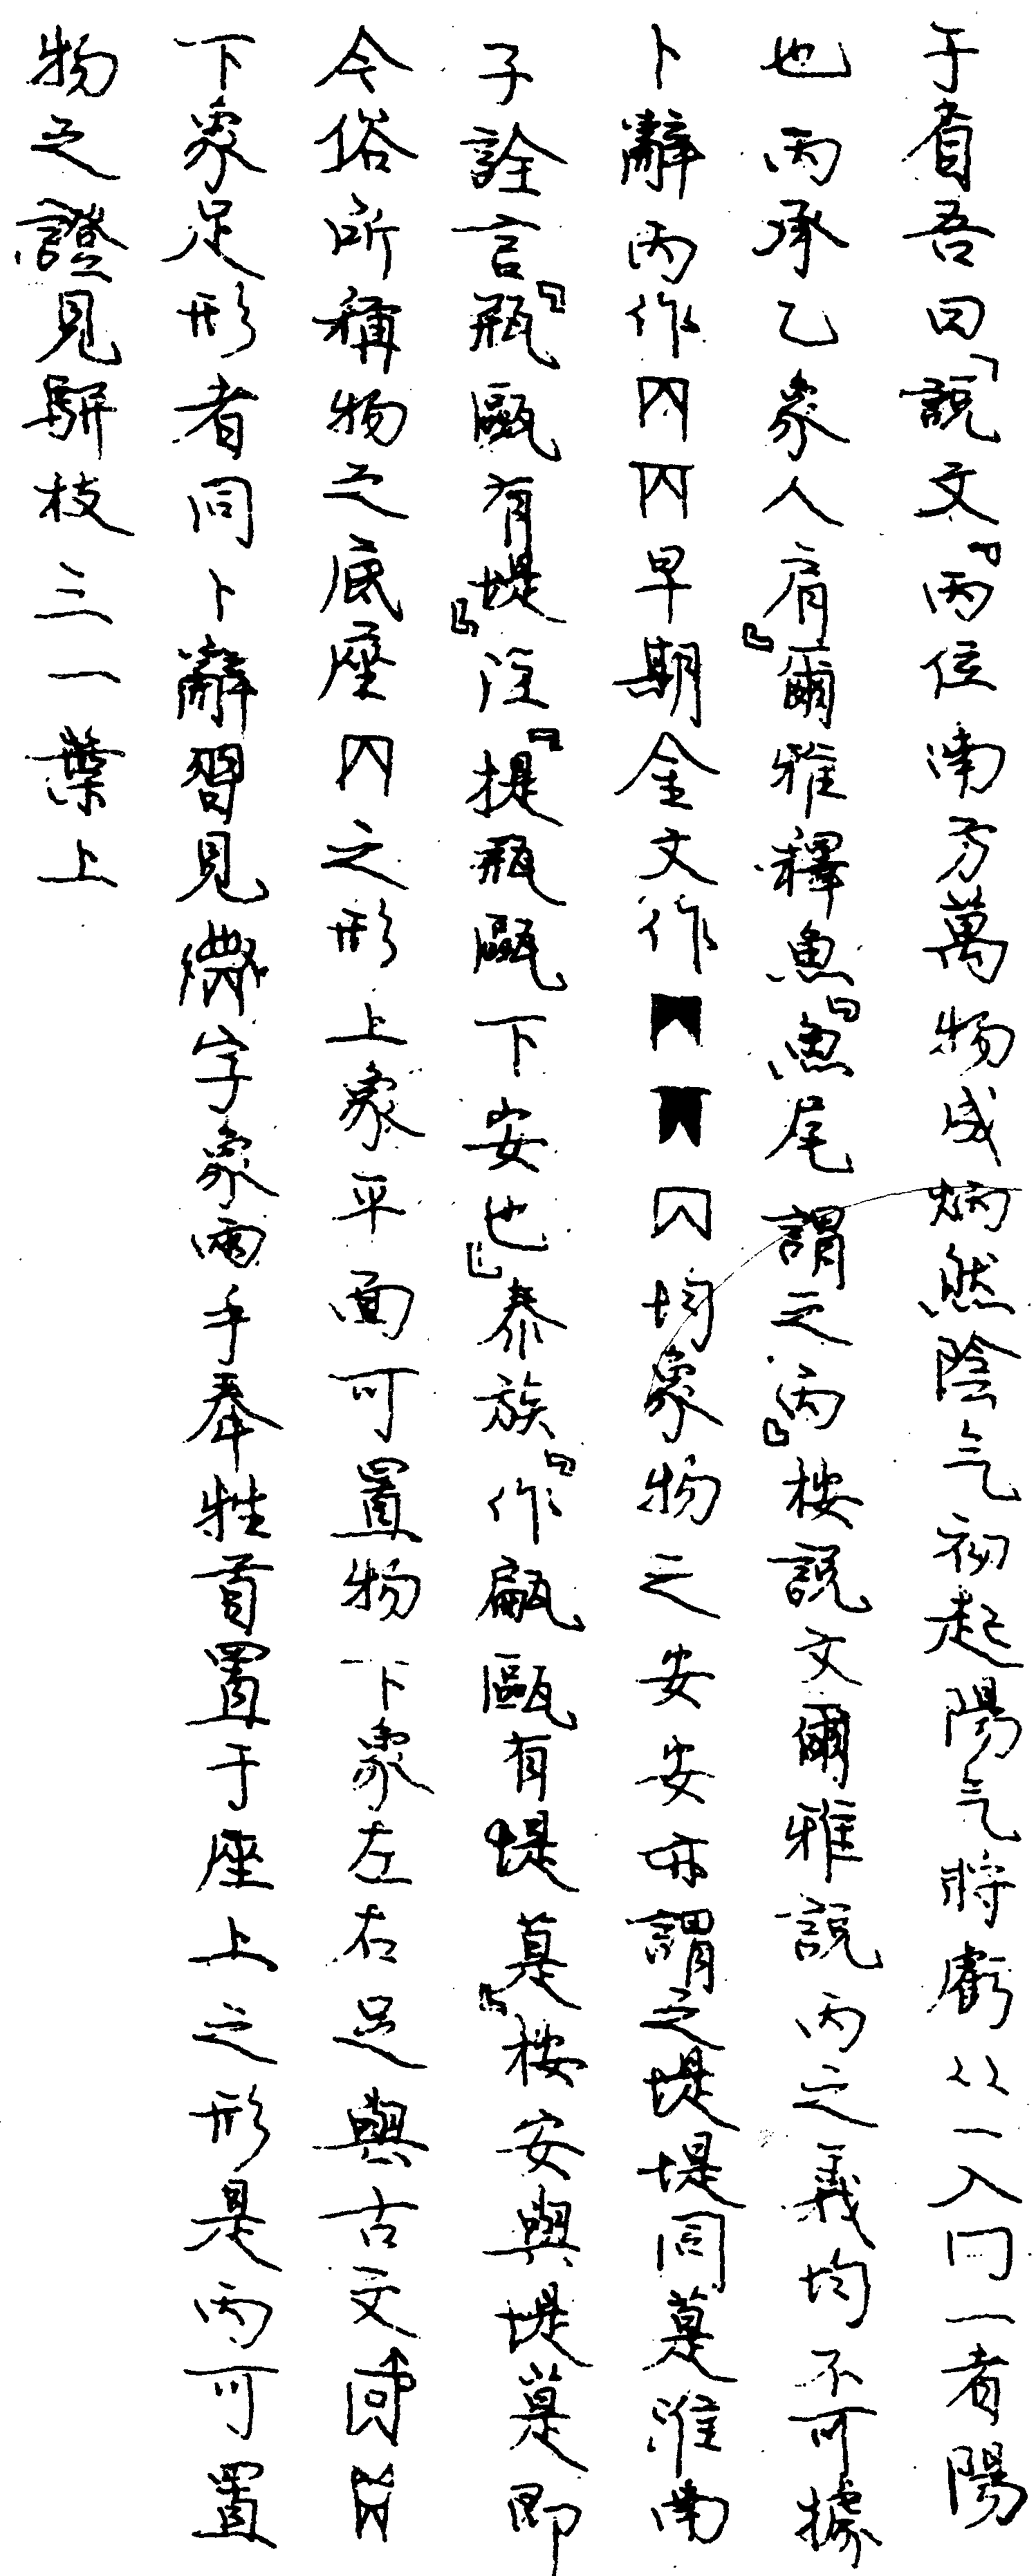 于省吾曰「說文『丙位南方萬物成炳然陰气初起陽气將虧从一入冂一者陽
也丙承乙象人肩』爾雅釋魚『魚尾謂之丙』桉說文爾雅說丙之義均不可據
卜辭丙作早期金文作均象物之安安亦謂之堤堤同葟淮南
子詮言『瓶甌有堤』注『提瓶甌下安也』泰族『作瓾甌有堤葟』桉安與堤葟即
今俗所稱物之底座之形上象平面可置物下象左右足與古文
下象足形者同卜辭習見字象兩手奉牲首置于座上之形是丙可置
物之證見駢枝三一葉上